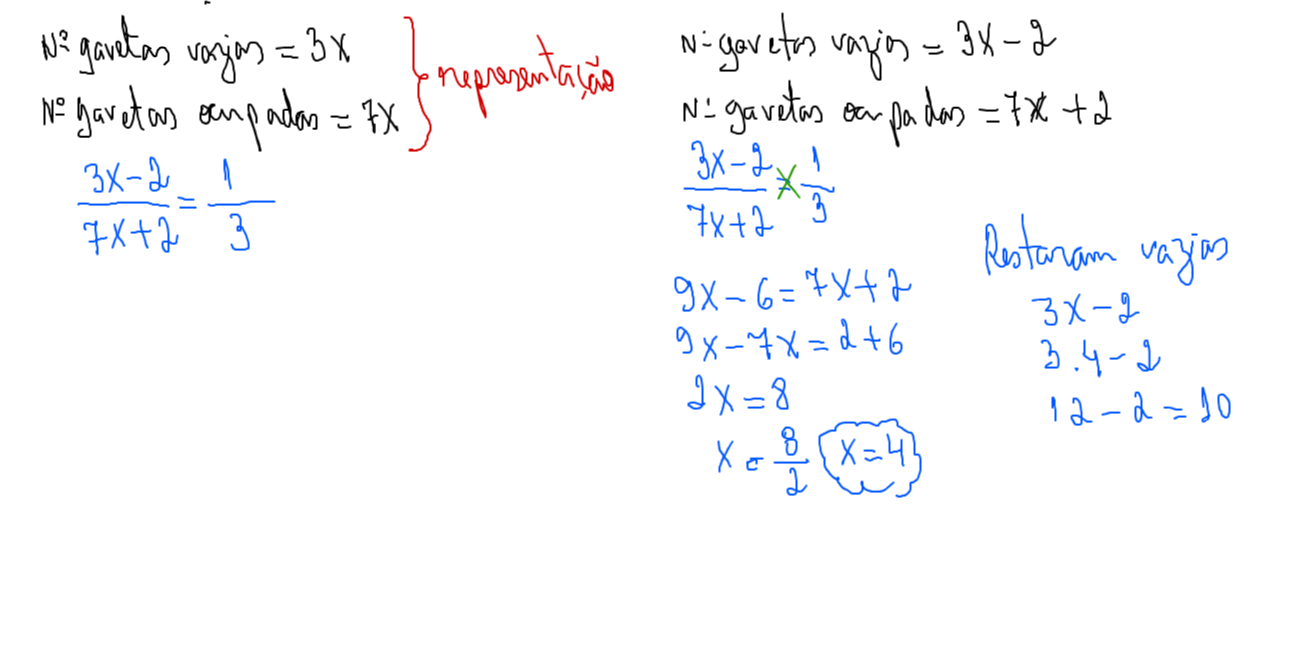 Nº gavetas vazias = 3x
Nº gavetas ocupadas = 7x
representação
3x-2 / 7x+2 = 1 / 3
Nº gavetas vazias = 3x-2
Nº gavetas ocupadas = 7x+2
3x-2 / 7x+2 = 1 / 3
9x-6=7x+2
9x-7x=2+6
2x=8
x = 8/2 x=4
Restaram vazias
3x-2
3.4-2
12-2=10